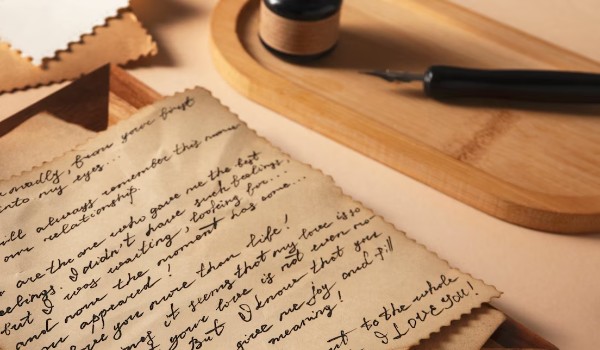 madly, from your first
into my eyes...
will always remember this name
our relationship.
are the one who gave me the best
feelings. I didn't have such feelings,
but I was waiting, looking for...
and now the moment has come...
you appeared!
love you more than life!
it seems that my love is so
your love is not even
But I know that you
give me joy and fill
meaning!
to the whole
I LOVE YOU!